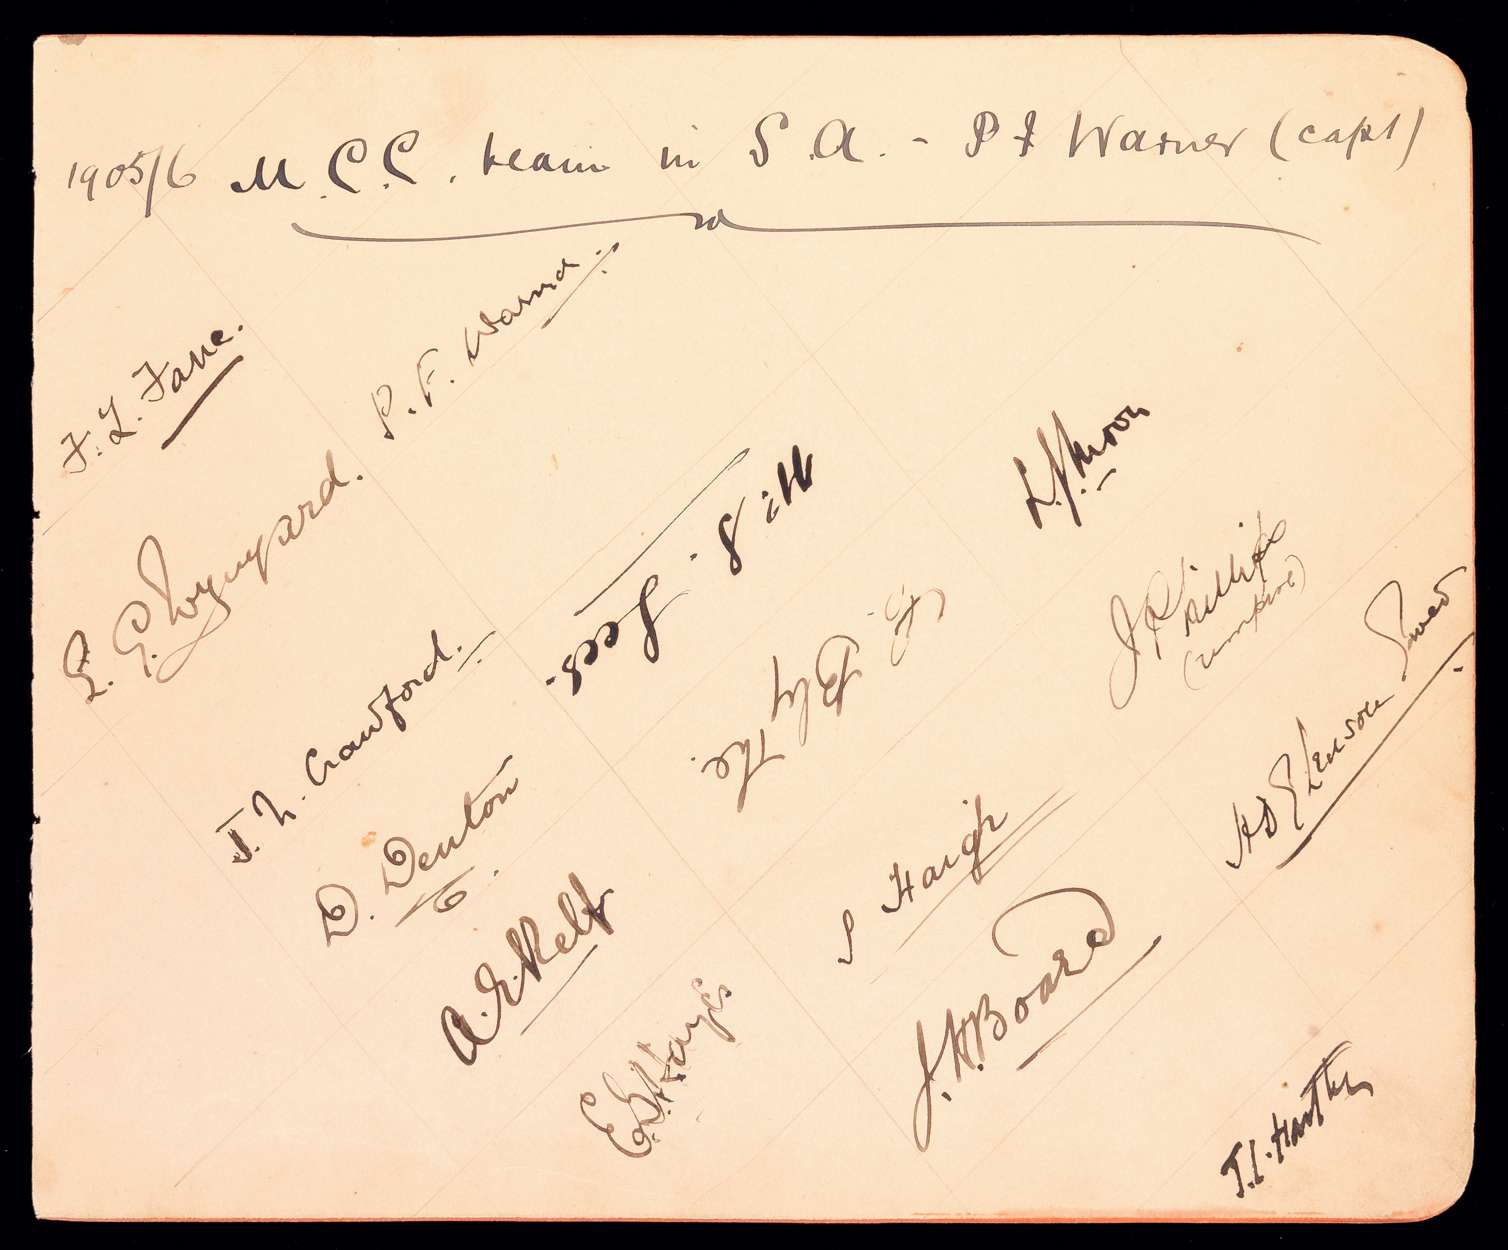 1905/6 M.C.C. team in S.A. - P F Warner (capt)
F. L. Fane.
P. F. Warner.
E. G. Wynyard.
L. J. Moon
W. S. Lees.
J Phillips
(umpire)
C. Blythe.
J. N. Crawford.
H D G Leveson Gower
D. Denton
A. E. Relf
S Haigh
J. H. Board
E. G. Hayes
J. C. Hartley